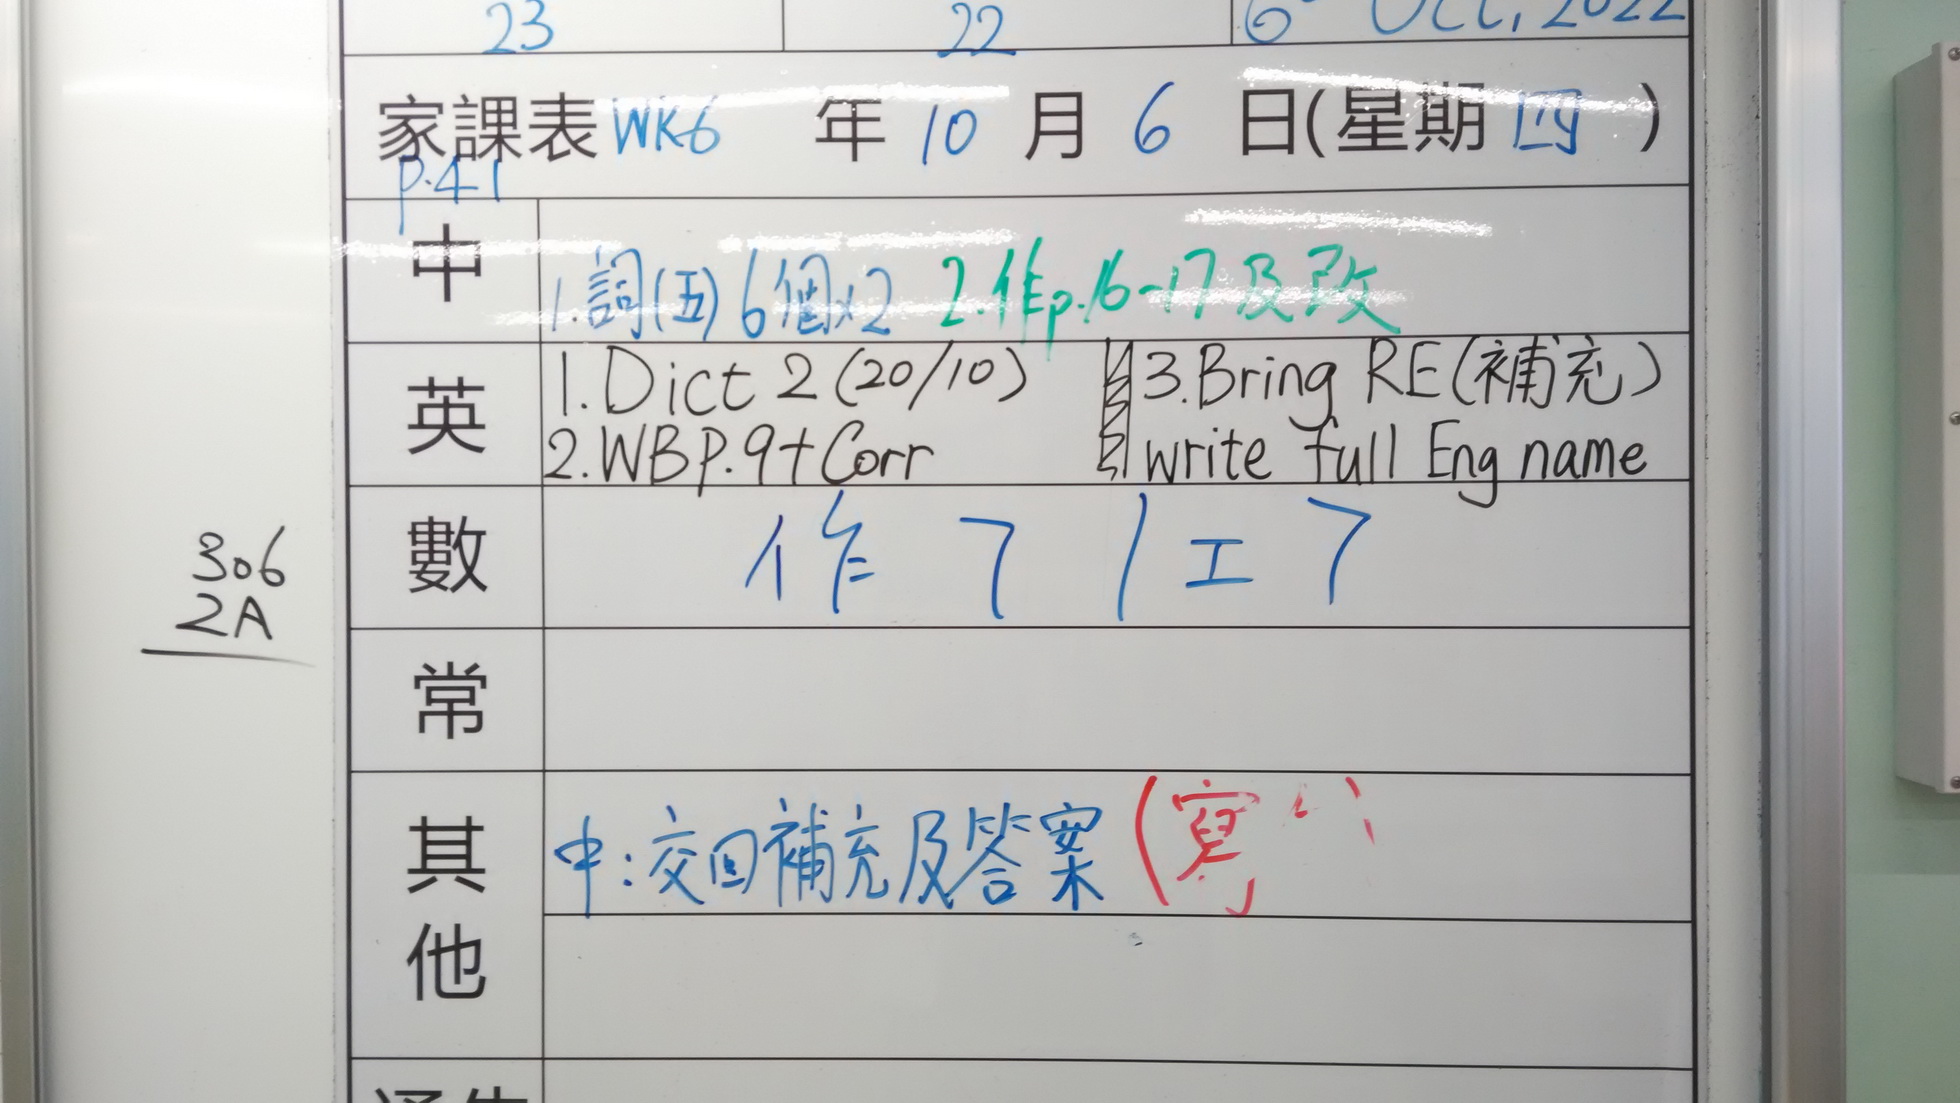 23 22 6 Oct, 2022
家課表 WK6 年 10 月 6 日(星期 四 )
P.41
中 1.詞(五) 6個x2 2.作p.16-17及改
英 1.Dict 2 (20/10) 3.Bring RE(補充)
2.WB P.9+Corr write full Eng name
數 作 7 / 工 7
常
其他 中:交回補充及答案 (寫
306
2A